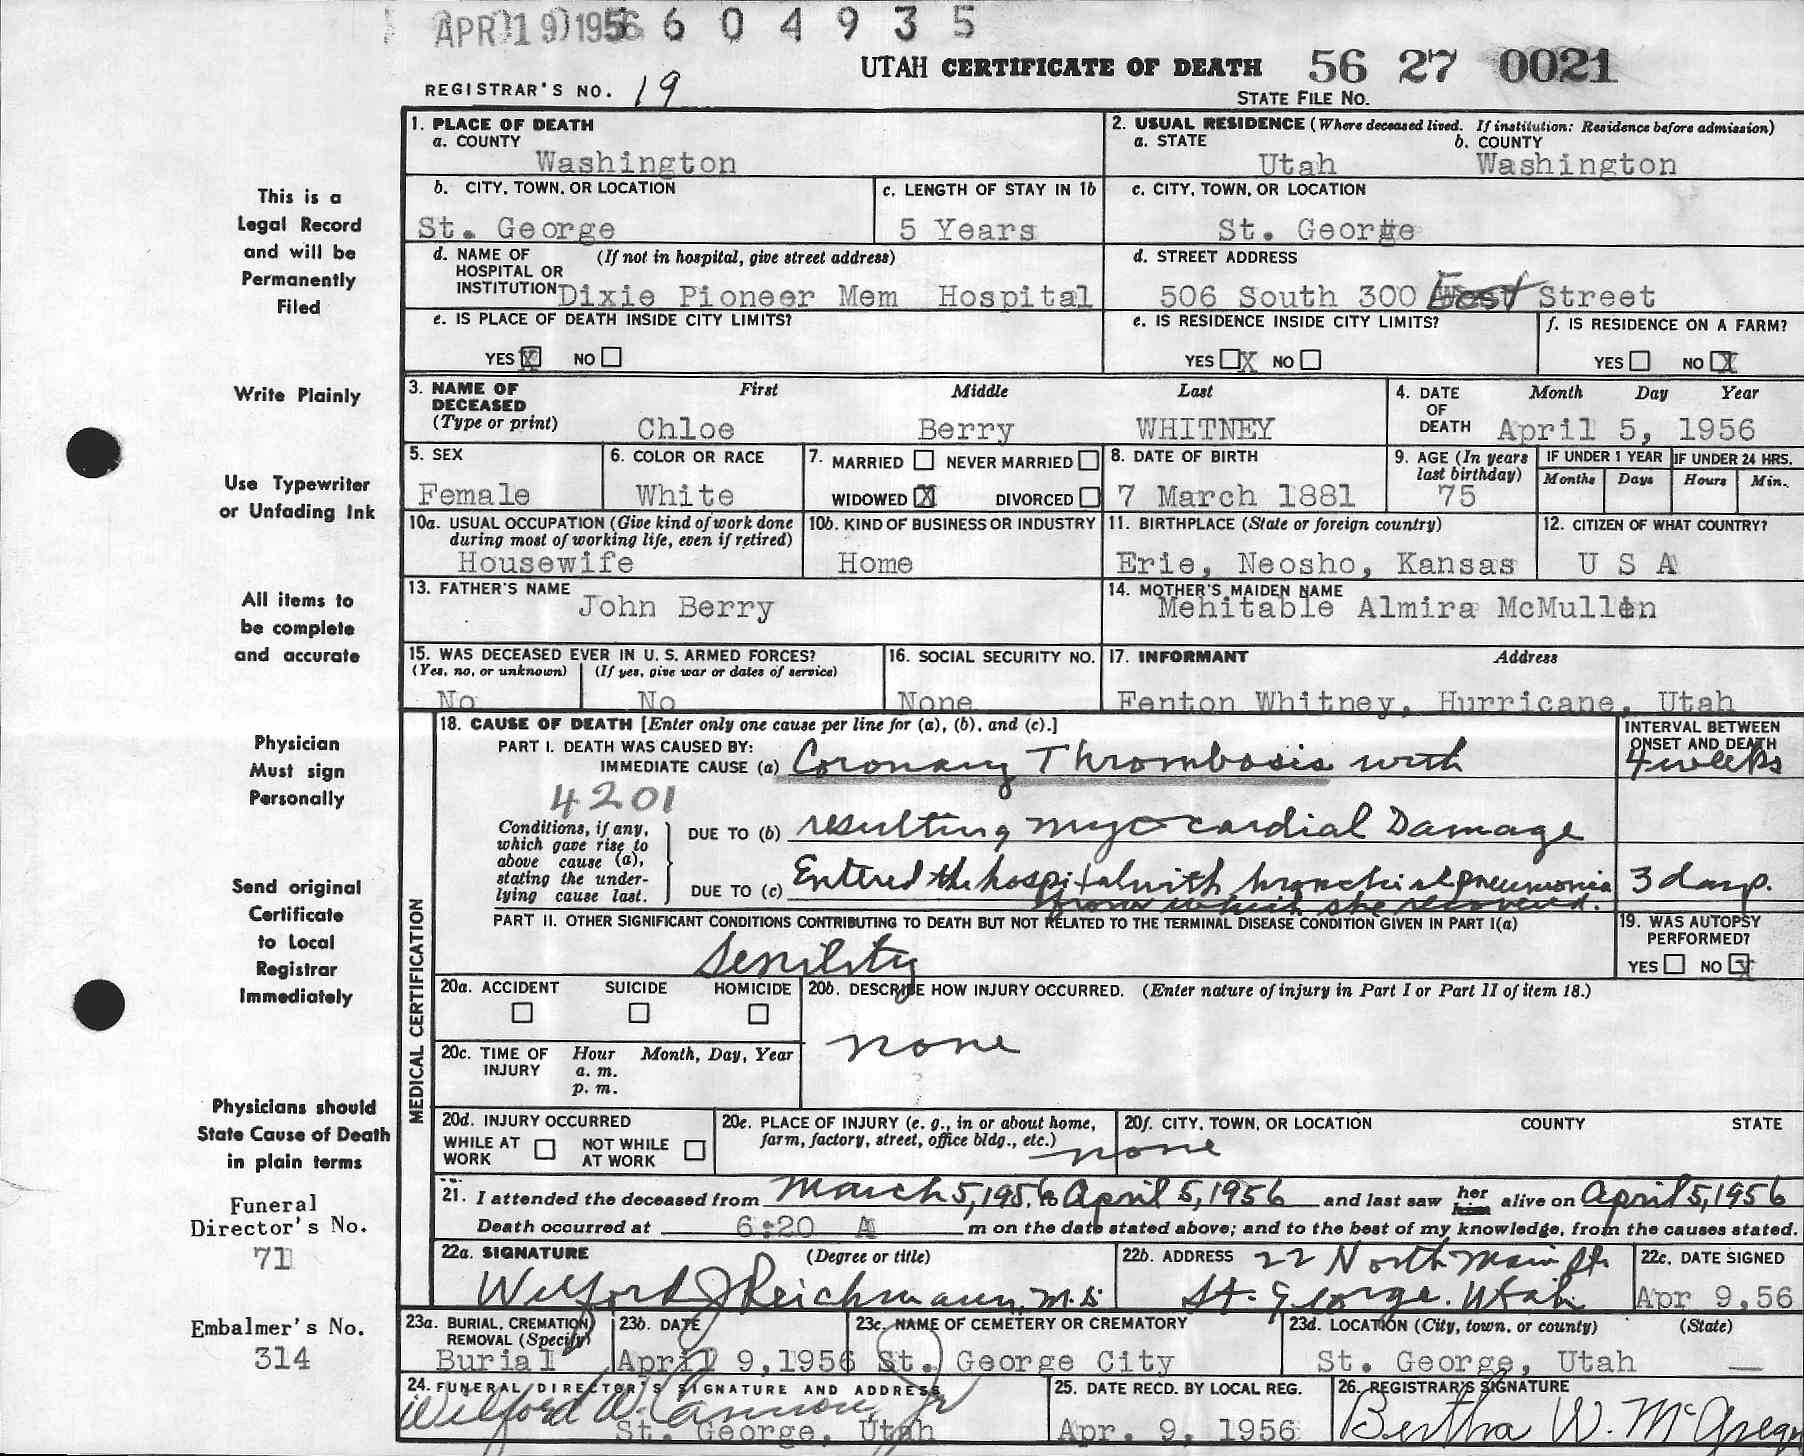 APR 19 1956 6 0 4 9 3 5
UTAH CERTIFICATE OF DEATH 56 27 0021
REGISTRAR'S NO. 19
STATE FILE NO.
1. PLACE OF DEATH
a. COUNTY
Washington
2. USUAL RESIDENCE (Where deceased lived. If institution: Residence before admission)
a. STATE b. COUNTY
Utah Washington
b. CITY, TOWN, OR LOCATION
St. George
c. LENGTH OF STAY IN 1b
5 Years
c. CITY, TOWN, OR LOCATION
St. George
d. NAME OF HOSPITAL OR INSTITUTION (If not in hospital, give street address)
Dixie Pioneer Mem Hospital
d. STREET ADDRESS
506 South 300 East Street
e. IS PLACE OF DEATH INSIDE CITY LIMITS?
YES X NO
e. IS RESIDENCE INSIDE CITY LIMITS?
YES X NO
f. IS RESIDENCE ON A FARM?
YES NO X
3. NAME OF DECEASED (Type or print)
First Middle Last
Chloe Berry WHITNEY
4. DATE OF DEATH Month Day Year
April 5, 1956
5. SEX
Female
6. COLOR OR RACE
White
7. MARRIED NEVER MARRIED
WIDOWED X DIVORCED
8. DATE OF BIRTH
7 March 1881
9. AGE (In years last birthday)
75
IF UNDER 1 YEAR
Months Days
IF UNDER 24 HRS.
Hours Min.
10a. USUAL OCCUPATION (Give kind of work done during most of working life, even if retired)
Housewife
10b. KIND OF BUSINESS OR INDUSTRY
Home
11. BIRTHPLACE (State or foreign country)
Erie, Neosho, Kansas
12. CITIZEN OF WHAT COUNTRY?
U S A
13. FATHER'S NAME
John Berry
14. MOTHER'S MAIDEN NAME
Mehitable Almira McMullin
15. WAS DECEASED EVER IN U. S. ARMED FORCES?
(Yes, no, or unknown) (If yes, give war or dates of service)
No No
16. SOCIAL SECURITY NO.
None
17. INFORMANT Address
Fenton Whitney, Hurricane, Utah
MEDICAL CERTIFICATION
18. CAUSE OF DEATH [Enter only one cause per line for (a), (b), and (c).]
INTERVAL BETWEEN ONSET AND DEATH
PART I. DEATH WAS CAUSED BY:
IMMEDIATE CAUSE (a) Coronary Thrombosis with 4 weeks
4201
Conditions, if any, which gave rise to above cause (a), stating the underlying cause last.
DUE TO (b) resulting myocardial Damage
DUE TO (c) Entered the hospital with bronchial pneumonia 3 days.
from which she recovered.
PART II. OTHER SIGNIFICANT CONDITIONS CONTRIBUTING TO DEATH BUT NOT RELATED TO THE TERMINAL DISEASE CONDITION GIVEN IN PART I(a)
Senility
19. WAS AUTOPSY PERFORMED?
YES NO X
20a. ACCIDENT SUICIDE HOMICIDE
20b. DESCRIBE HOW INJURY OCCURRED. (Enter nature of injury in Part I or Part II of item 18.)
none
20c. TIME OF INJURY Hour Month, Day, Year
a. m.
p. m.
20d. INJURY OCCURRED
WHILE AT WORK NOT WHILE AT WORK
20e. PLACE OF INJURY (e. g., in or about home, farm, factory, street, office bldg., etc.)
none
20f. CITY, TOWN, OR LOCATION COUNTY STATE
21. I attended the deceased from March 5, 1956 to April 5, 1956 and last saw her him alive on April 5, 1956
Death occurred at 6:20 A m on the date stated above; and to the best of my knowledge, from the causes stated.
22a. SIGNATURE (Degree or title)
Wilford J Reichmann, M.D.
22b. ADDRESS 22 North Main St.
St. George. Utah
22c. DATE SIGNED
Apr 9,56
23a. BURIAL, CREMATION, REMOVAL (Specify)
Burial
23b. DATE
April 9,1956
23c. NAME OF CEMETERY OR CREMATORY
St. George City
23d. LOCATION (City, town, or county) (State)
St. George, Utah
24. FUNERAL DIRECTOR'S SIGNATURE AND ADDRESS
Wilford W Cannon Jr
St. George, Utah
25. DATE RECD. BY LOCAL REG.
Apr. 9, 1956
26. REGISTRAR'S SIGNATURE
Bertha W. McGregor
This is a
Legal Record
and will be
Permanently
Filed
Write Plainly
Use Typewriter
or Unfading Ink
All items to
be complete
and accurate
Physician
Must sign
Personally
Send original
Certificate
to Local
Registrar
Immediately
Physicians should
State Cause of Death
in plain terms
Funeral
Director's No.
71
Embalmer's No.
314